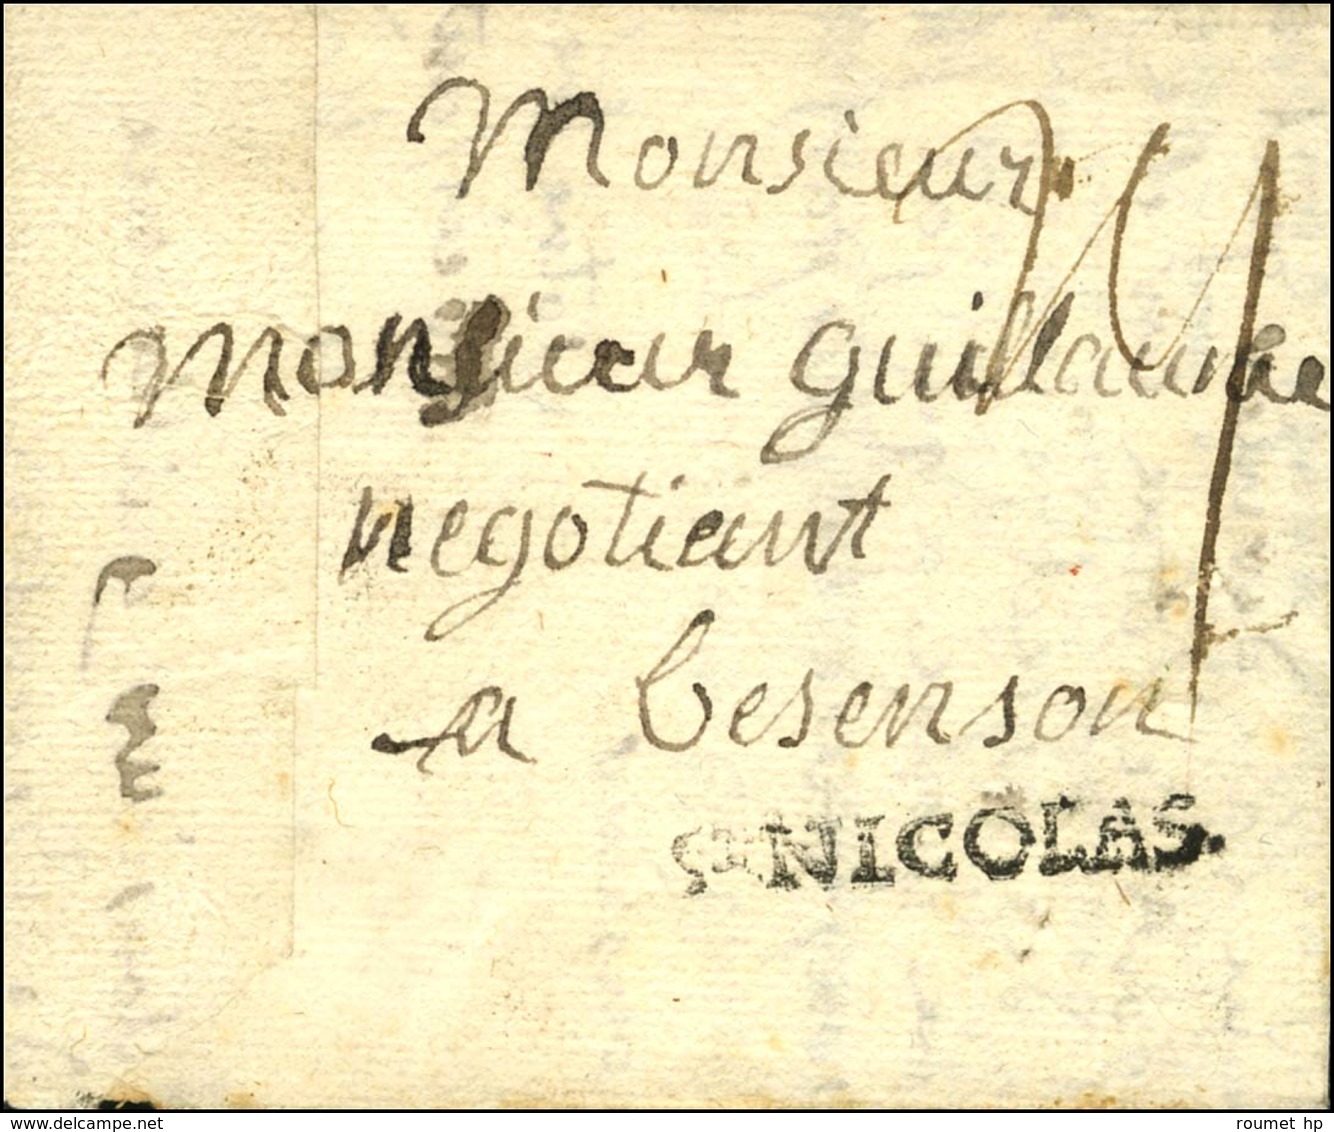 Monsieur
Monsieur guillaume
negotiant
a besenson
St NICOLAS.
delcampe.net
roumet hp